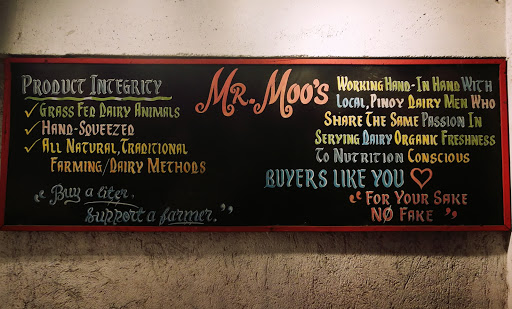 Product Integrity
✓ Grass Fed Dairy Animals
✓ Hand-Squeezed
✓ All Natural, Traditional
Farming/Dairy Methods
"Buy a liter,
support a farmer."
Mr. Moo's
Working Hand-In Hand With
Local, Pinoy Dairy Men Who
Share The Same Passion In
Serving Dairy Organic Freshness
To Nutrition Conscious
Buyers Like You ♡
"For Your Sake
No Fake"